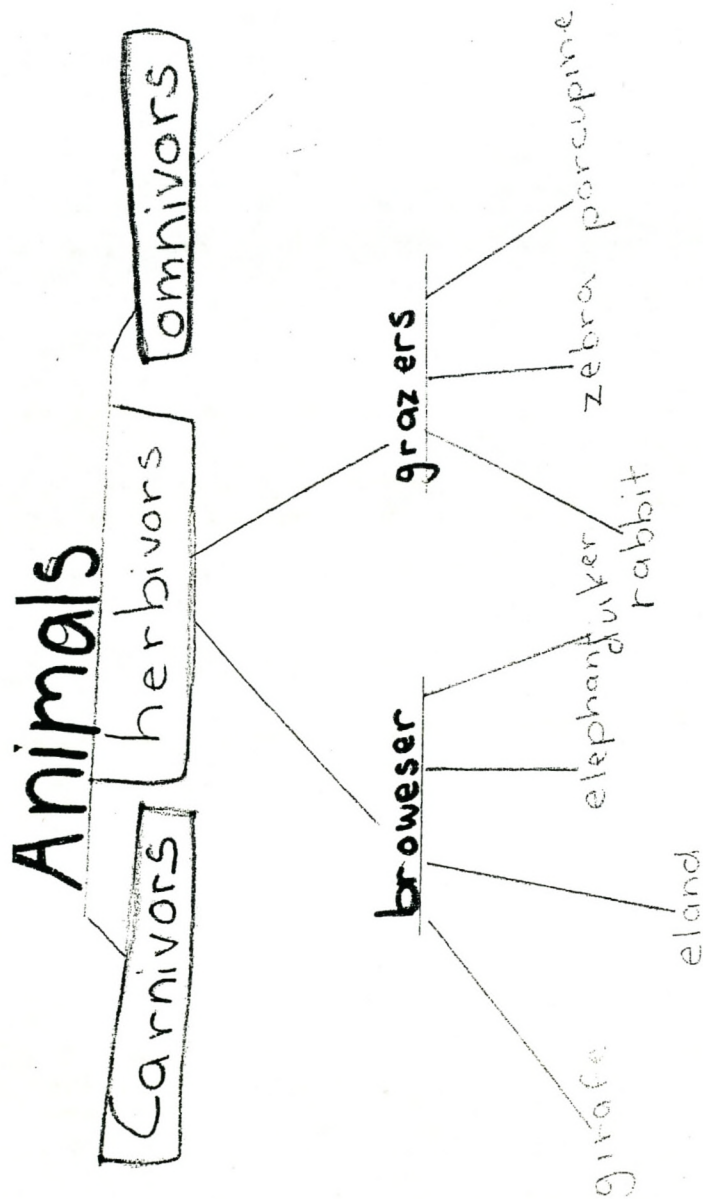 Animals
Carnivors herbivors omnivors
broweser grazers
girafe eland elephant duiker rabbit zebra porcupine